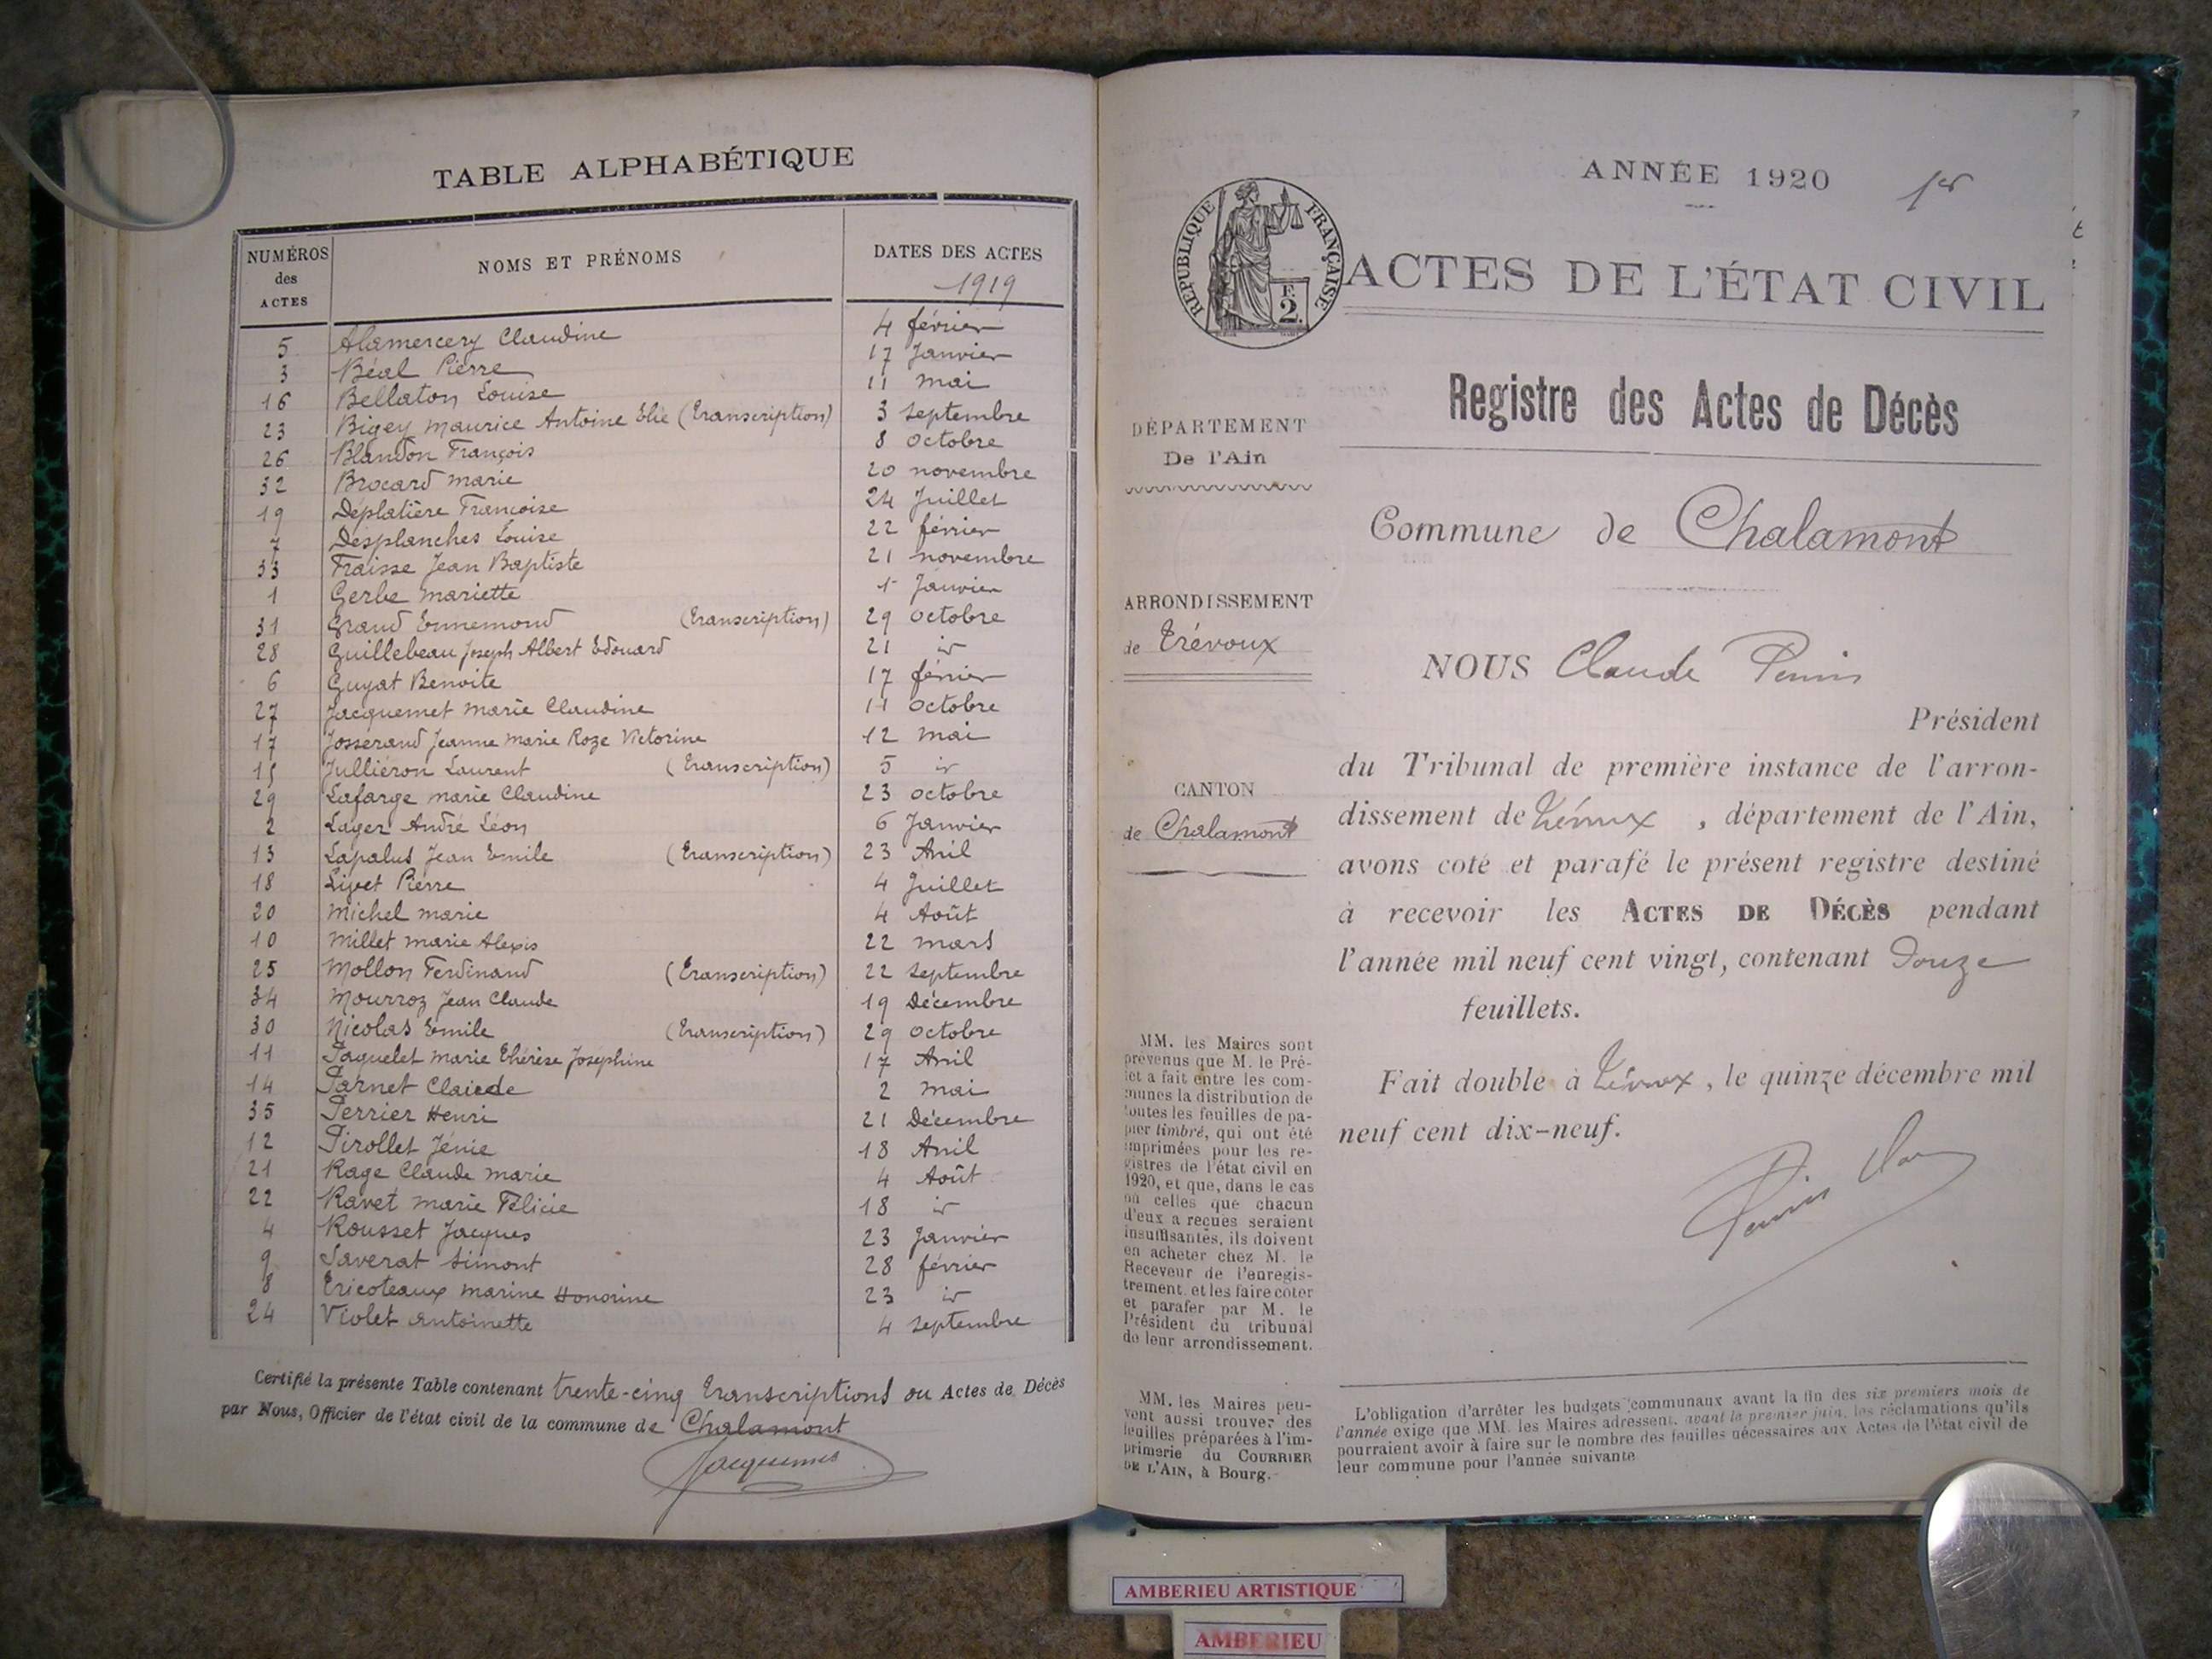 TABLE ALPHABÉTIQUE
NUMÉROS des ACTES
NOMS ET PRÉNOMS
DATES DES ACTES
1919
5 Alamercery Claudine 4 février
3 Béal Pierre 17 Janvier
16 Bellaton Louise 11 mai
23 Bigey Maurice Antoine Elie (transcription) 3 septembre
26 Blandon François 8 octobre
32 Brocard marie 20 novembre
19 Déplatière Françoise 24 Juillet
7 Desplanches Louise 22 février
33 Fraisse Jean Baptiste 21 novembre
1 Gerbe Mariette 1er Janvier
31 Grand Ennemond (transcription) 29 octobre
28 Guillebeau Joseph Albert Edouard 21 id
6 Guyat Benoite 17 février
27 Jacquemet Marie Claudine 11 octobre
17 Josserand Jeanne Marie Roze Victorine 12 mai
15 Julliéron Laurent (transcription) 5 id
29 Lafarge marie Claudine 23 octobre
2 Lager André Léon 6 Janvier
13 Lapalus Jean Emile (transcription) 23 Avril
18 Livet Pierre 4 Juillet
20 Michel marie 4 Août
10 Millet marie Alexis 22 mars
25 Mollon Ferdinand (transcription) 22 septembre
34 Mourroz Jean Claude 19 Décembre
30 Nicolas Emile (transcription) 29 octobre
11 Paquelet Marie Thérèse Joséphine 17 Avril
14 Parnet Claude 2 mai
35 Perrier Henri 21 Décembre
12 Pirollet Jénie 18 Avril
21 Rage Claude Marie 4 Août
22 Ravet Marie Félicie 18 id
4 Rousset Jacques 23 Janvier
9 Saverat Simont 28 février
8 Tricoteaux marine Honorine 23 id
24 Violet Antoinette 4 septembre
Certifié la présente Table contenant trente-cinq transcriptions ou Actes de Décès
par Nous, Officier de l'état civil de la commune de Chalamont
Jacquemet
ANNÉE 1920
1er
RÉPUBLIQUE FRANÇAISE
F.
2.
ACTES DE L'ÉTAT CIVIL
Registre des Actes de Décès
DÉPARTEMENT
De l'Ain
Commune de Chalamont
ARRONDISSEMENT
de Trévoux
NOUS Claude
Président
du Tribunal de première instance de l'arron-
dissement de Trévoux, département de l'Ain,
avons coté et parafé le présent registre destiné
à recevoir les ACTES DE DÉCÈS pendant
l'année mil neuf cent vingt, contenant Douze
feuillets.
Fait double à Trévoux, le quinze décembre mil
neuf cent dix-neuf.
CANTON
de Chalamont
MM. les Maires sont
prévenus que M. le Pré-
fet a fait entre les com-
munes la distribution de
toutes les feuilles de pa-
pier timbré, qui ont été
imprimées pour les re-
gistres de l'état civil en
1920, et que, dans le cas
où celles que chacun
d'eux a reçues seraient
insuffisantes, ils doivent
en acheter chez M. le
Receveur de l'enregis-
trement, et les faire coter
et parafer par M. le
Président du tribunal
de leur arrondissement.
MM. les Maires peu-
vent aussi trouver des
feuilles préparées à l'im-
primerie du COURRIER
DE L'AIN, à Bourg.
L'obligation d'arrêter les budgets communaux avant la fin des six premiers mois de
l'année exige que MM. les Maires adressent, avant le premier juin, les réclamations qu'ils
pourraient avoir à faire sur le nombre des feuilles nécessaires aux Actes de l'état civil de
leur commune pour l'année suivante
AMBERIEU ARTISTIQUE
AMBERIEU